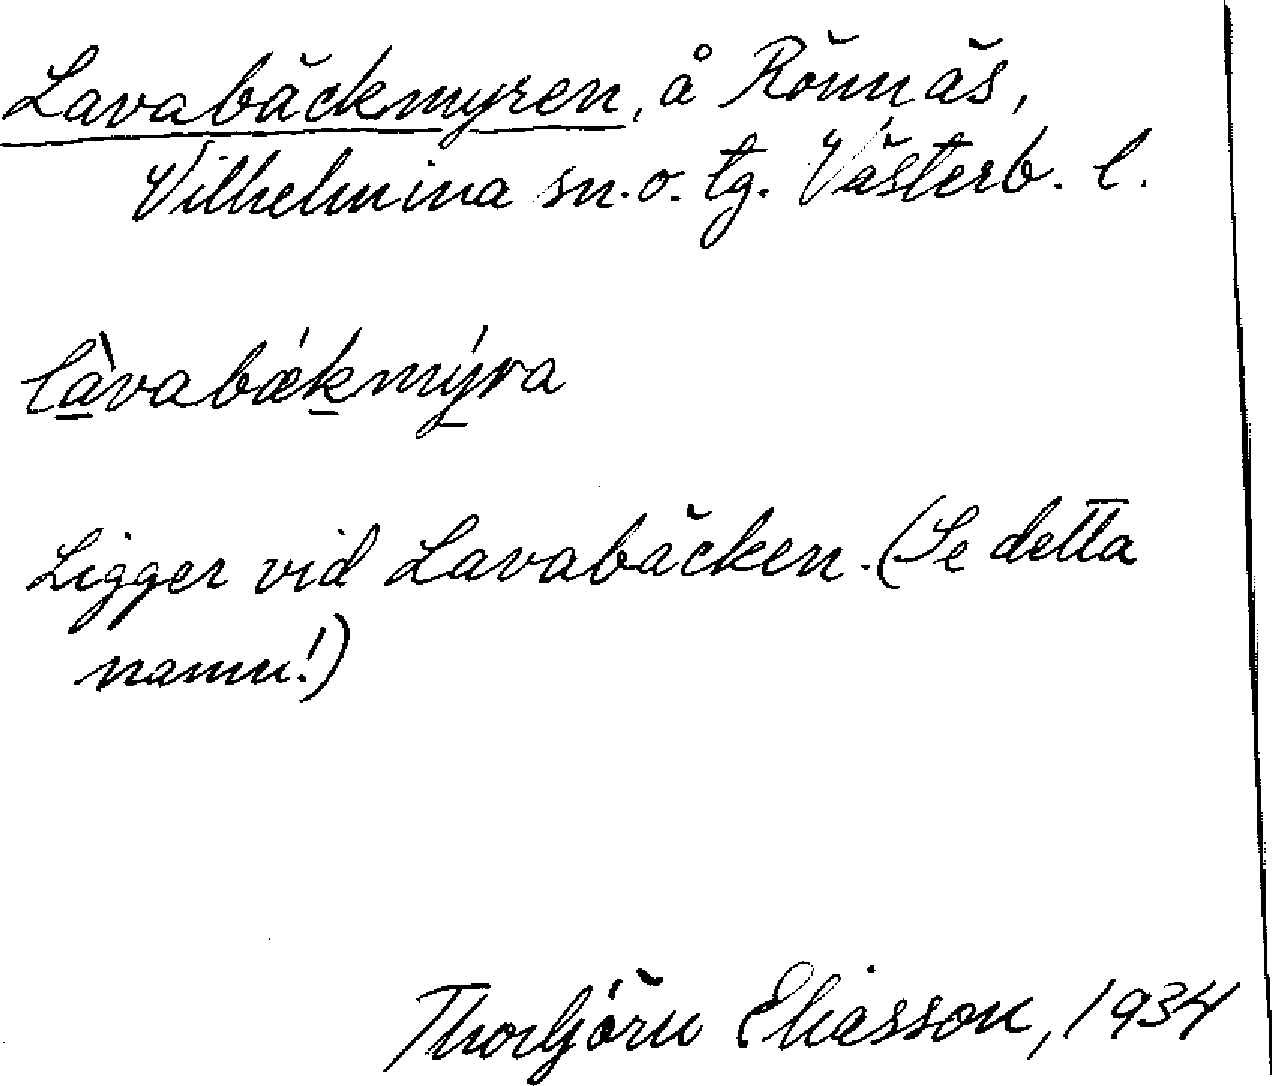 Lavabäckmyren, å Rönnäs,
Vilhelmina sn. o. tg. Västerb. l.
là̱vabǽḵmý̱ra
Ligger vid Lavabäcken. (Se detta
namn!)
Thorbjörn Eliasson, 1934